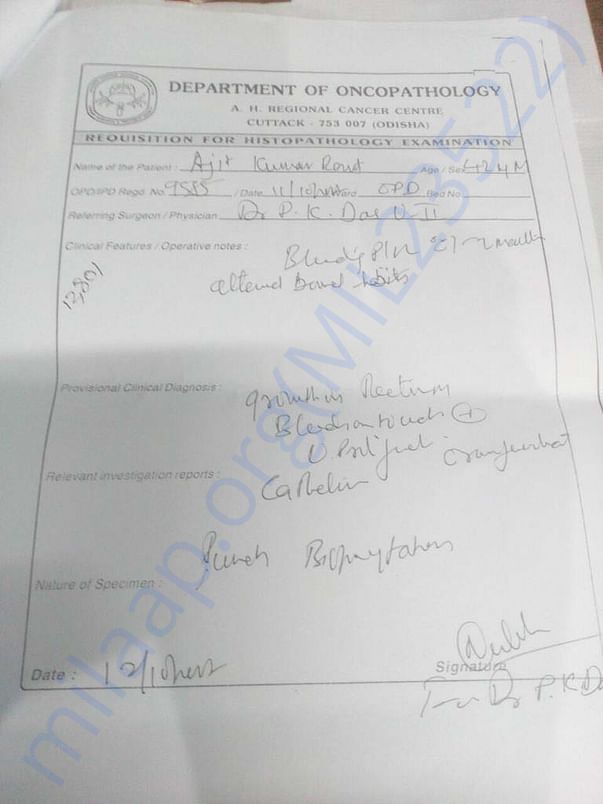 DEPARTMENT OF ONCOPATHOLOGY
A. H. REGIONAL CANCER CENTRE
CUTTACK - 753 007 (ODISHA)
REQUISITION FOR HISTOPATHOLOGY EXAMINATION
Name of the Patient : Ajit Kumar Rout Age / Sex 42y M
OPD/IPD Regd. No. 9585 / Date 11/10/ Ward OPD Bed No.
Referring Surgeon / Physician Dr P. K. Das U-II
Clinical Features / Operative notes : Bleeding P/R
altered bowel habits
Provisional Clinical Diagnosis : growth in Rectum
Bleeds on touch +
Relevant investigation reports : Ca Rectum
Punch Biopsy taken
Nature of Specimen :
Date : 12/10/
Signature
For Dr P. K. Da
milaap.org(MIL23522)